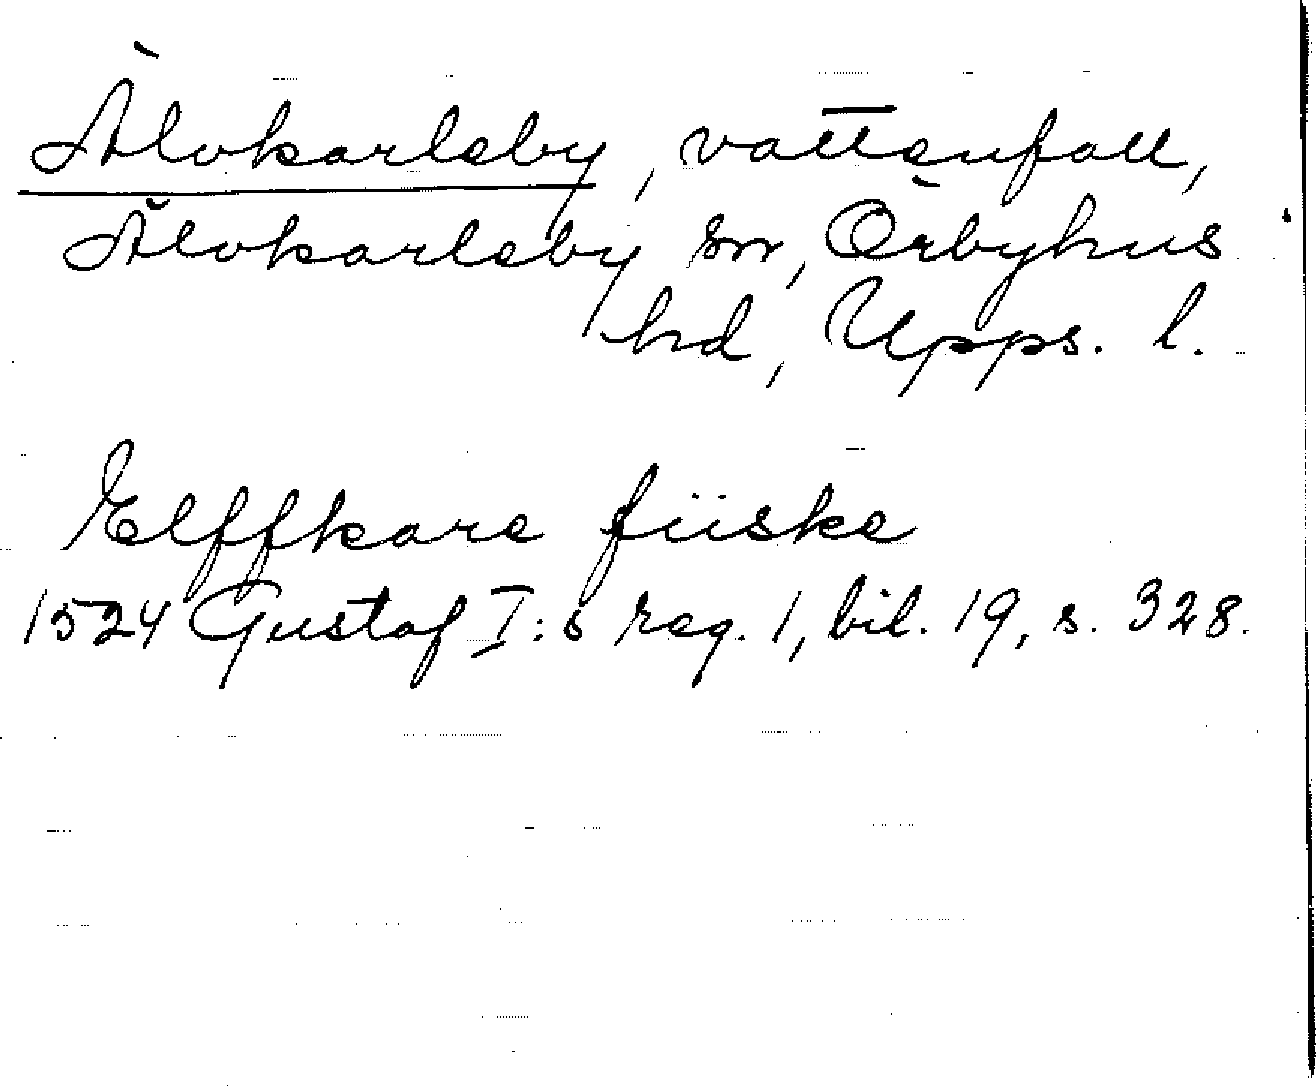 Älvkarleby, vattenfall,
Älvkarleby sn, Örbyhus
hd, Upps. l.
Elffkare fiiske
1524 Gustaf I:s reg. 1, bil. 19, s. 328.